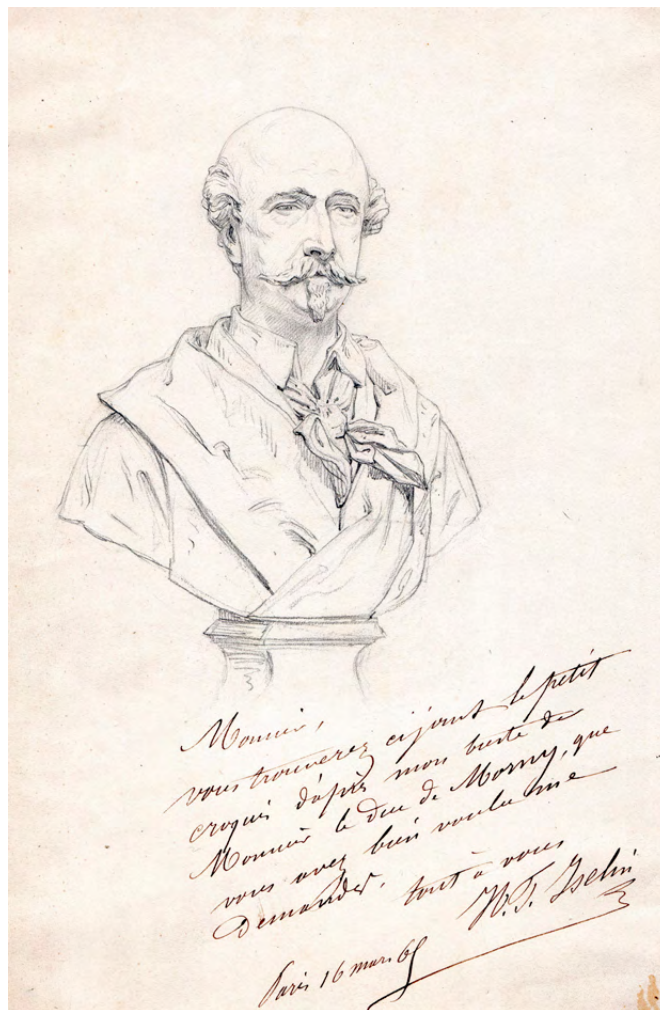 Monsieur,
vous trouverez cijoint le petit
croquis d'après mon buste de
Monsieur le Duc de Morny, que
vous avez bien voulu me
Demander. tout à vous
H. F. Iselin
Paris 16 mars 65